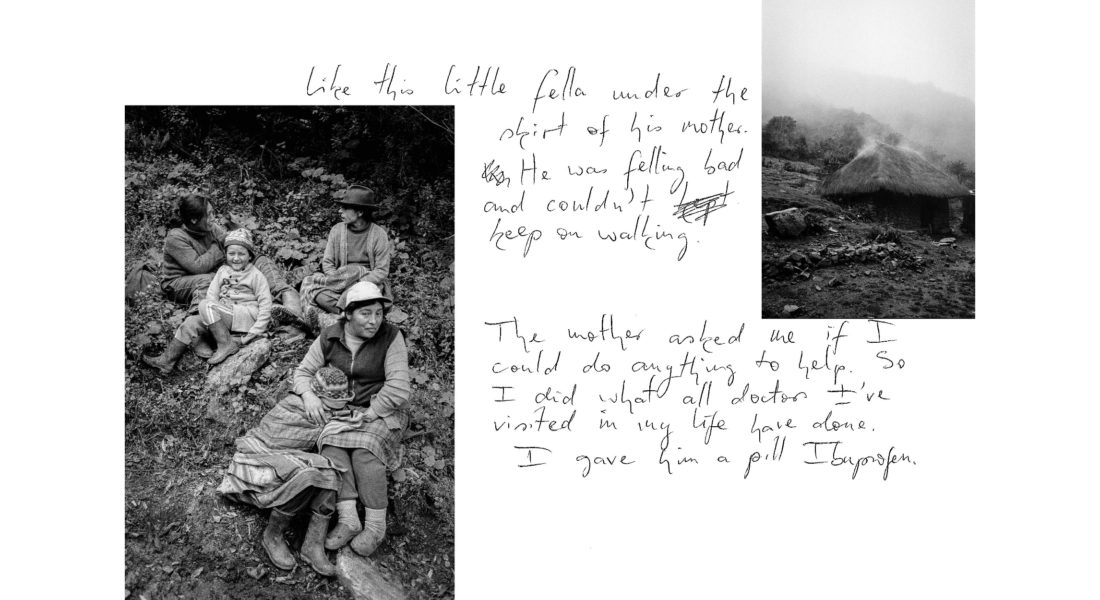 Like this little fella under the
skirt of his mother.
He was felling bad
and couldn't
keep on walking.
The mother asked me if I
could do anything to help. So
I did what all doctors I've
visited in my life have done.
I gave him a pill Ibuprofen.